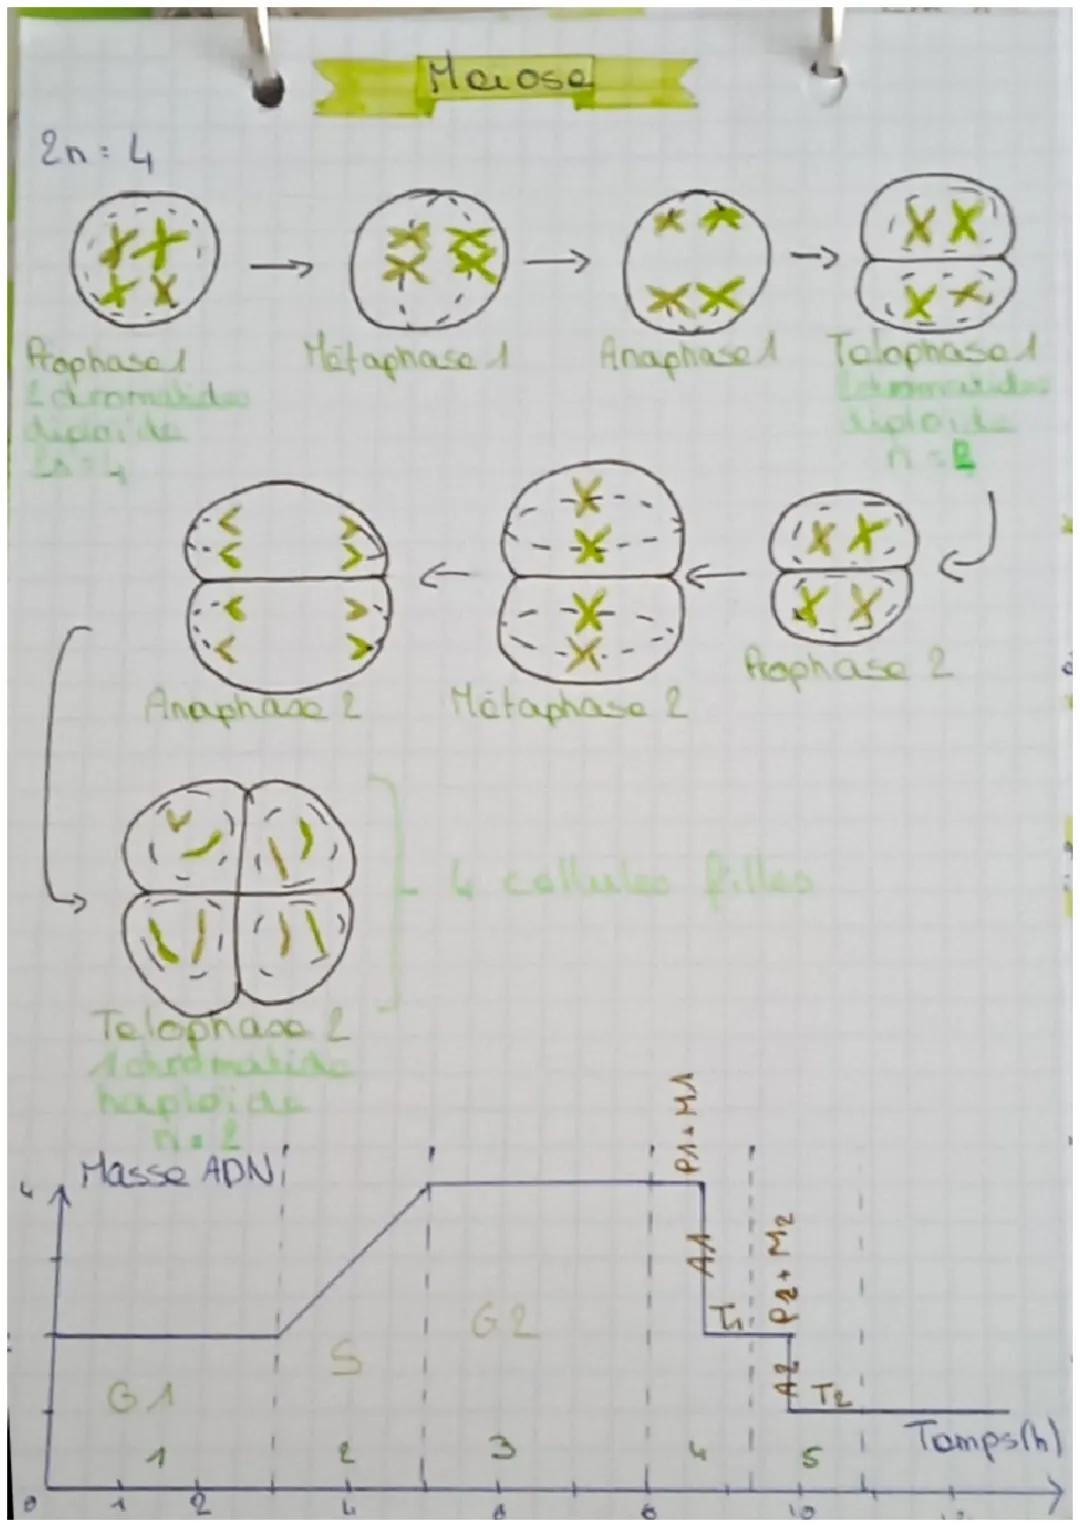 Meiose
2n = 4
Prophase 1
2 chromatides
diploïde
2n = 4
Métaphase 1
Anaphase 1
Telophase 1
2 chromatides
diploïde
n = 2
Anaphase 2
Métaphase 2
Prophase 2
4 cellules filles
Telophase 2
1 chromatide
haploïde
n = 2
Masse ADN
4
P1 + M1
A1
T1
P2 + M2
A2
T2
G1
S
G2
1 2 3 4 5
Temps (h)
0 1 2 4 6 8 10 12